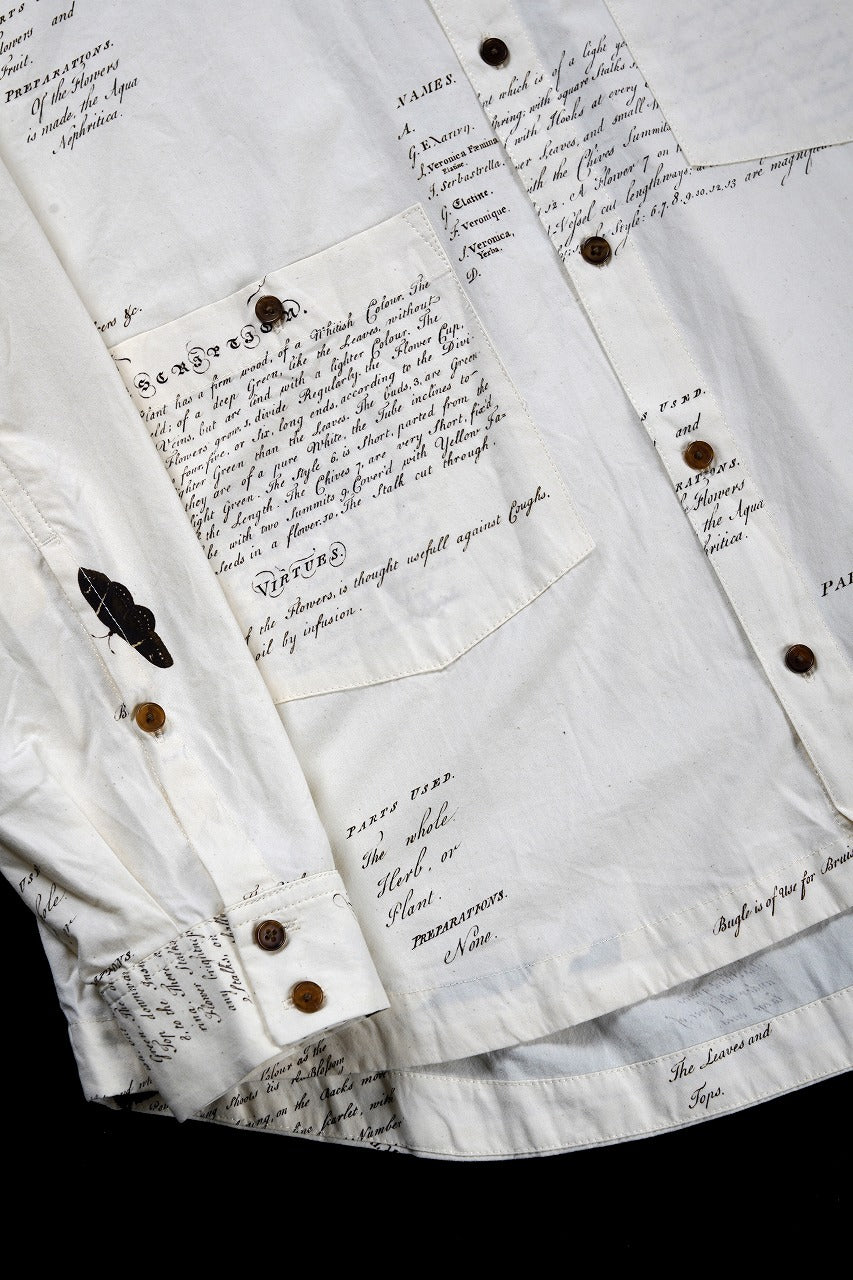 lowers and
Fruit.
PREPARATIONS.
Of the Flowers
is made, the Aqua
Nephritica.
NAMES.
A.
G. Ελατινη.
L. Veronica Fœmina
Elatine.
I. Serbastrella.
G. Elatine.
F. Veronique.
S. Veronica,
Yerba.
D.
which is of a light
pring; with square Stalks
with Hooks at every
Leaves, and small
ith the Chives Summits
12. A Flower 7 on
Vessel cut lengthways;
Style: 6.7.8.9.10.12.13 are
&c.
SCRIPTION.
lant has a firm wood, of a Whitish Colour. The
eld; of a deep Green, like the Leaves, without
Veins, but are lind with a lighter Colour. The
Flowers grow 5, divide Regularly, the Flower Cup,
four, five, or Six, long ends, according to the Divi-
ghter Green than the Leaves. The buds, 3, are Green
they are of a pure White, the Tube inclines to
light Green. The Style 6, is Short, parted from the
the Length. The Chives 7, are very Short, fix'd
be with two Summits 9 Cover'd with Yellow Fa-
Seeds in a flower. 10, The Stalk cut through.
VIRTUES.
f the Flowers, is thought usefull against Coughs.
oil by infusion.
S USED.
and
RATIONS.
Flowers
the Aqua
hritica.
PA
B
PARTS USED.
The whole
Herb, or
Plant.
PREPARATIONS.
None.
Bugle is of Use for Bruis
The Leaves and
Tops.
US
ole
or
Colour as the
Shoots tis Blossom
on the Backs more
Scarlet, with
Number